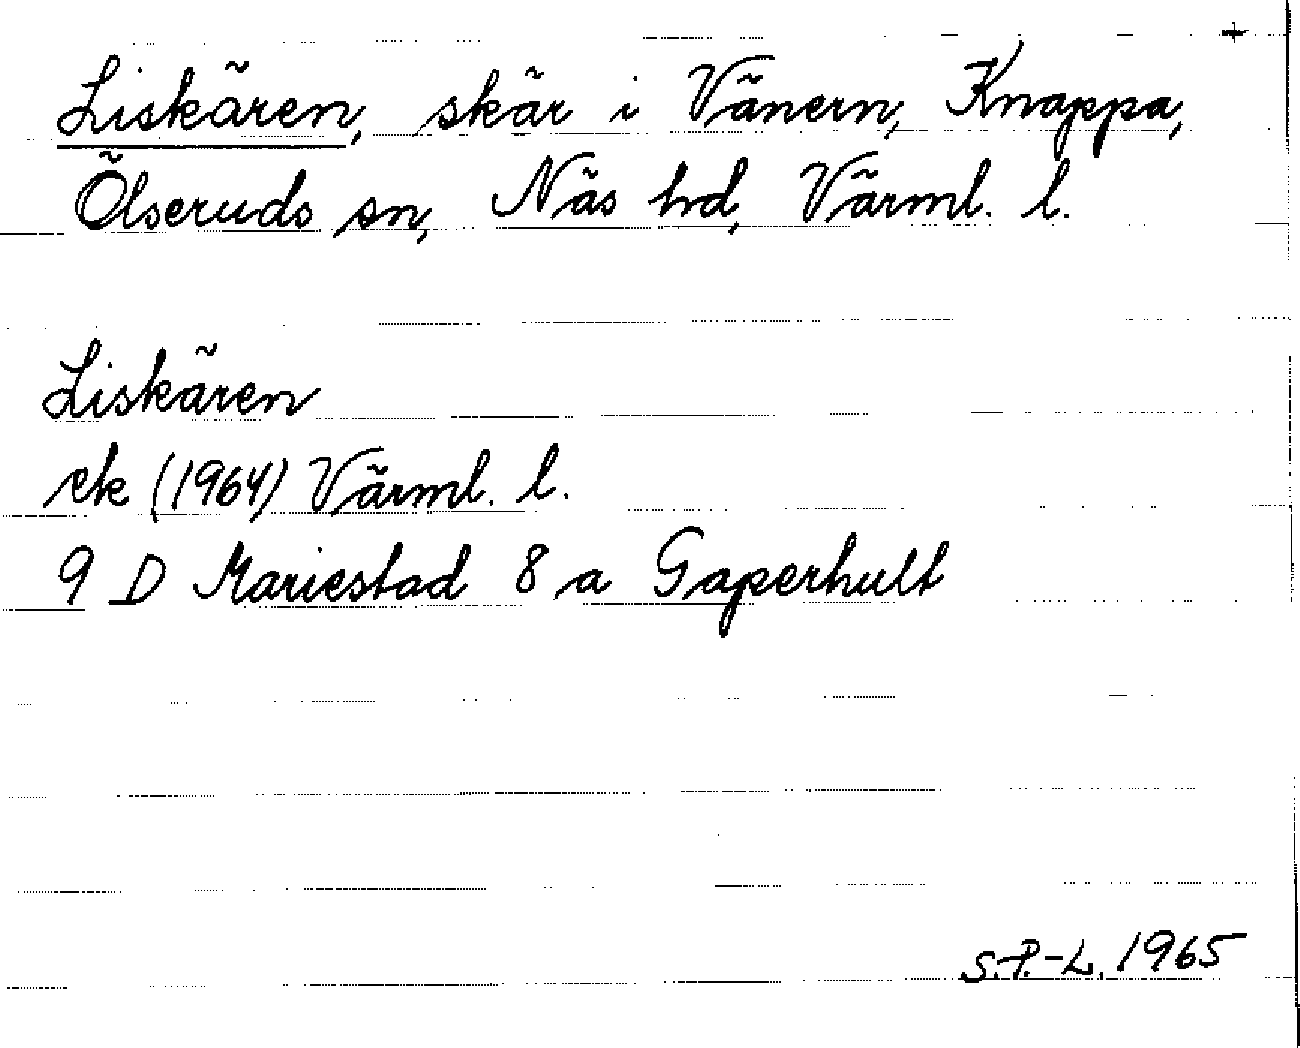 +
Liskären, skär i Vänern, Knappa,
Ölseruds sn, Näs hd, Värml. l.
Liskären
ek (1964) Värml. l.
9 D Mariestad 8 a Gaperhult
S.P.-L. 1965